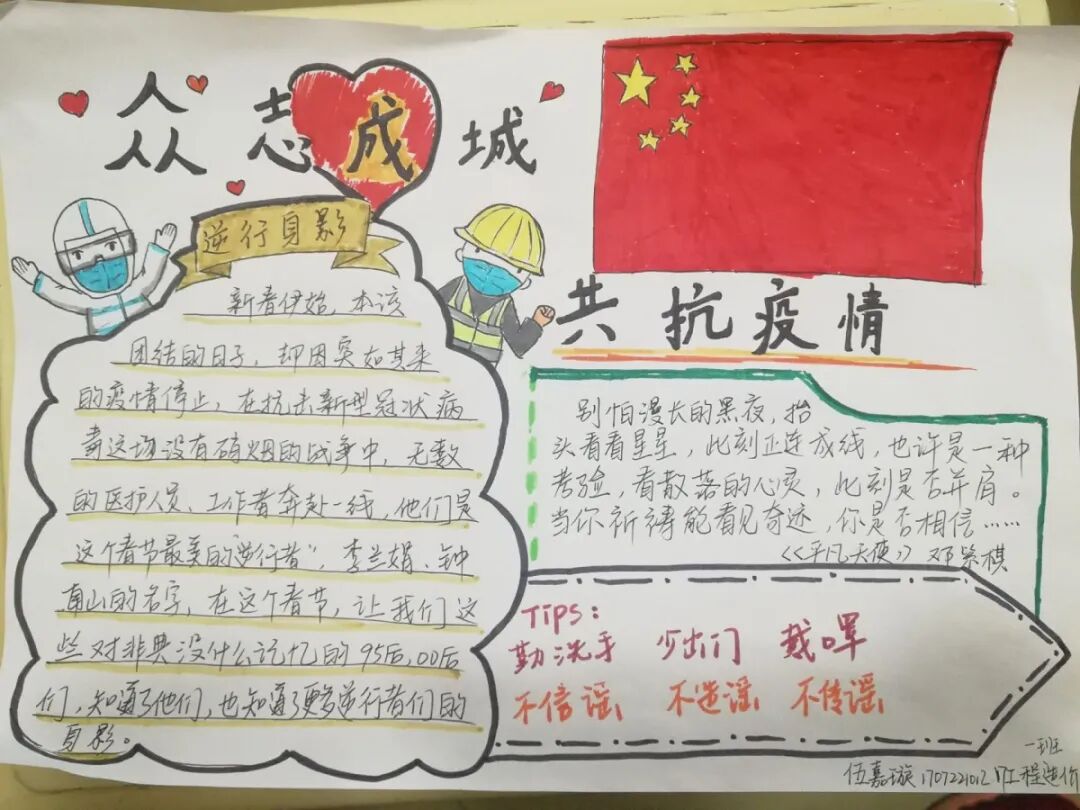 众志成城
逆行身影
新春伊始，本该
团结的日子，却因突如其来
的疫情停止，在抗击新型冠状病
毒这场没有硝烟的战争中，无数
的医护人员、工作者奔赴一线，他们是
这个春节最美的“逆行者”，李兰娟、钟
南山的名字，在这个春节，让我们这
些对非典没什么记忆的95后，00后
们，知道了他们，也知道了更多逆行者们的
身影。
共抗疫情
别怕漫长的黑夜，抬
头看看星星，此刻正连成线，也许是一种
考验，看散落的心灵，此刻是否并肩。
当你祈祷能看见奇迹，你是否相信……
《平凡天使》邓紫棋
Tips：
勤洗手 少出门 戴口罩
不信谣 不造谣 不传谣
一班
伍嘉璇 17工程造价